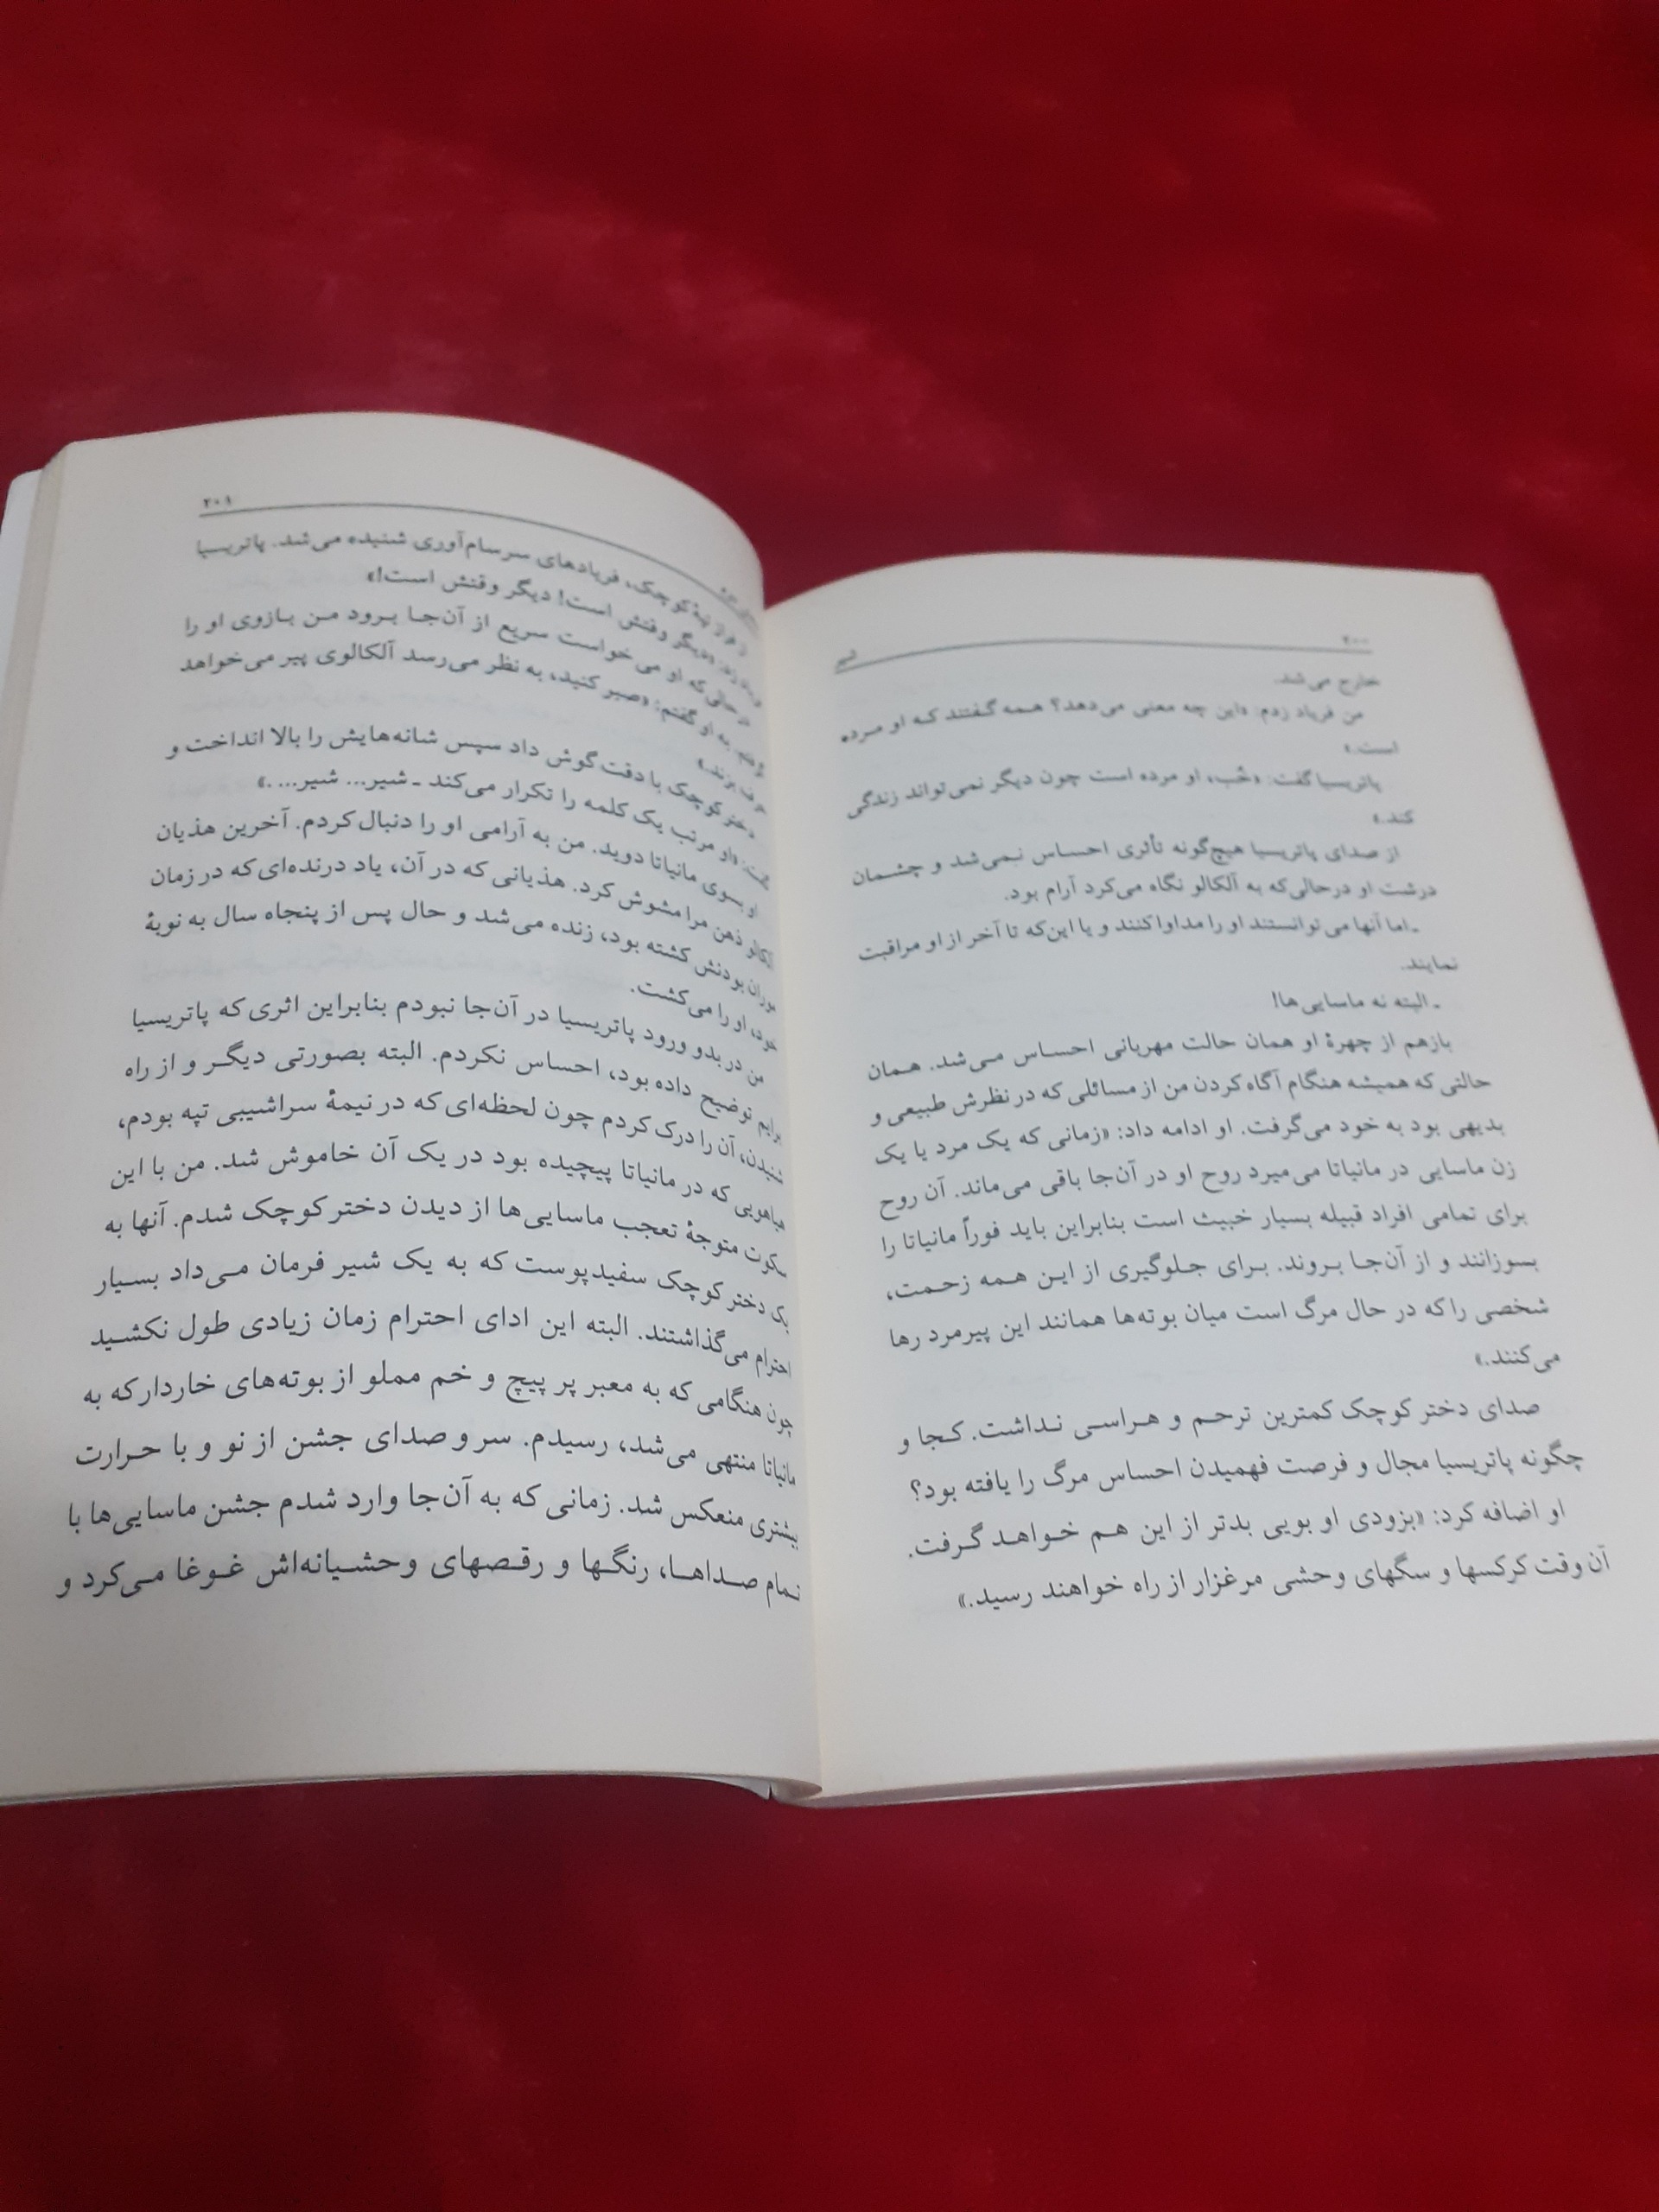 ۲۰۰
شیر
خارج می‌شد.
من فریاد زدم: «این چه معنی می‌دهد؟ همه گفتند که او مرده
است.»
پاتریسیا گفت: «خُب، او مرده است چون دیگر نمی‌تواند زندگی
کند.»
از صدای پاتریسیا هیچ‌گونه تأثری احساس نمی‌شد و چشمان
درشت او درحالی‌که به آلکالو نگاه می‌کرد آرام بود.
ـ اما آنها می‌توانستند او را مداوا کنند و یا این‌که تا آخر از او مراقبت
نمایند.
ـ البته نه ماسایی‌ها!
بازهم از چهرهٔ او همان حالت مهربانی احساس می‌شد. همان
حالتی که همیشه هنگام آگاه کردن من از مسائلی که در نظرش طبیعی و
بدیهی بود به خود می‌گرفت. او ادامه داد: «زمانی که یک مرد یا یک
زن ماسایی در مانیاتا می‌میرد روح او در آن‌جا باقی می‌ماند. آن روح
برای تمامی افراد قبیله بسیار خبیث است بنابراین باید فوراً مانیاتا را
بسوزانند و از آن‌جا بروند. برای جلوگیری از این همه زحمت،
شخصی را که در حال مرگ است میان بوته‌ها همانند این پیرمرد رها
می‌کنند.»
صدای دختر کوچک کمترین ترحم و هراسی نداشت. کجا و
چگونه پاتریسیا مجال و فرصت فهمیدن احساس مرگ را یافته بود؟
او اضافه کرد: «بزودی او بویی بدتر از این هم خواهد گرفت.
آن وقت کرکسها و سگهای وحشی مرغزار از راه خواهند رسید.»
۲۰۱
از فراز تپهٔ کوچک، فریادهای سرسام‌آوری شنیده می‌شد. پاتریسیا
فریاد زد: «دیگر وقتش است! دیگر وقتش است!»
در حالی‌که او می‌خواست سریع از آن‌جا برود من بازوی او را
گرفتم. به او گفتم: «صبر کنید، به نظر می‌رسد آلکالوی پیر می‌خواهد
حرف بزند.»
دختر کوچک با دقت گوش داد سپس شانه‌هایش را بالا انداخت و
گفت: «او مرتب یک کلمه را تکرار می‌کند ـ شیر... شیر... .»
او بسوی مانیاتا دوید. من به آرامی او را دنبال کردم. آخرین هذیان
آلکالو ذهن مرا مشوش کرد. هذیانی که در آن، یاد درنده‌ای که در زمان
موران بودنش کشته بود، زنده می‌شد و حال پس از پنجاه سال به نوبهٔ
خود، او را می‌کشت.
من در بدو ورود پاتریسیا در آن‌جا نبودم بنابراین اثری که پاتریسیا
برایم توضیح داده بود، احساس نکردم. البته بصورتی دیگر و از راه
شنیدن، آن را درک کردم چون لحظه‌ای که در نیمهٔ سراشیبی تپه بودم،
هیاهویی که در مانیاتا پیچیده بود در یک آن خاموش شد. من با این
سکوت متوجهٔ تعجب ماسایی‌ها از دیدن دختر کوچک شدم. آنها به
یک دختر کوچک سفیدپوست که به یک شیر فرمان می‌داد بسیار
احترام می‌گذاشتند. البته این ادای احترام زمان زیادی طول نکشید
چون هنگامی که به معبر پر پیچ و خم مملو از بوته‌های خاردار که به
مانیاتا منتهی می‌شد، رسیدم. سر و صدای جشن از نو و با حرارت
بیشتری منعکس شد. زمانی که به آن‌جا وارد شدم جشن ماسایی‌ها با
تمام صداها، رنگها و رقصهای وحشیانه‌اش غوغا می‌کرد و